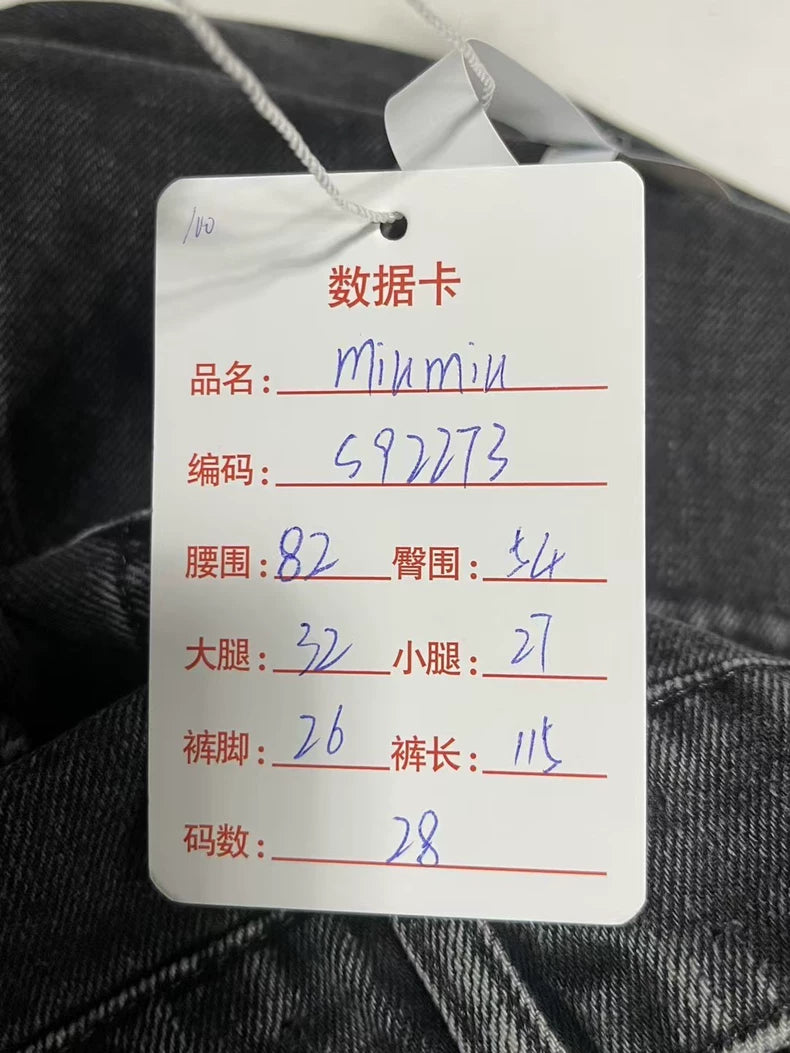 100
数据卡
品名: miumiu
编码: 592273
腰围: 82 臀围: 54
大腿: 32 小腿: 27
裤脚: 26 裤长: 115
码数: 28